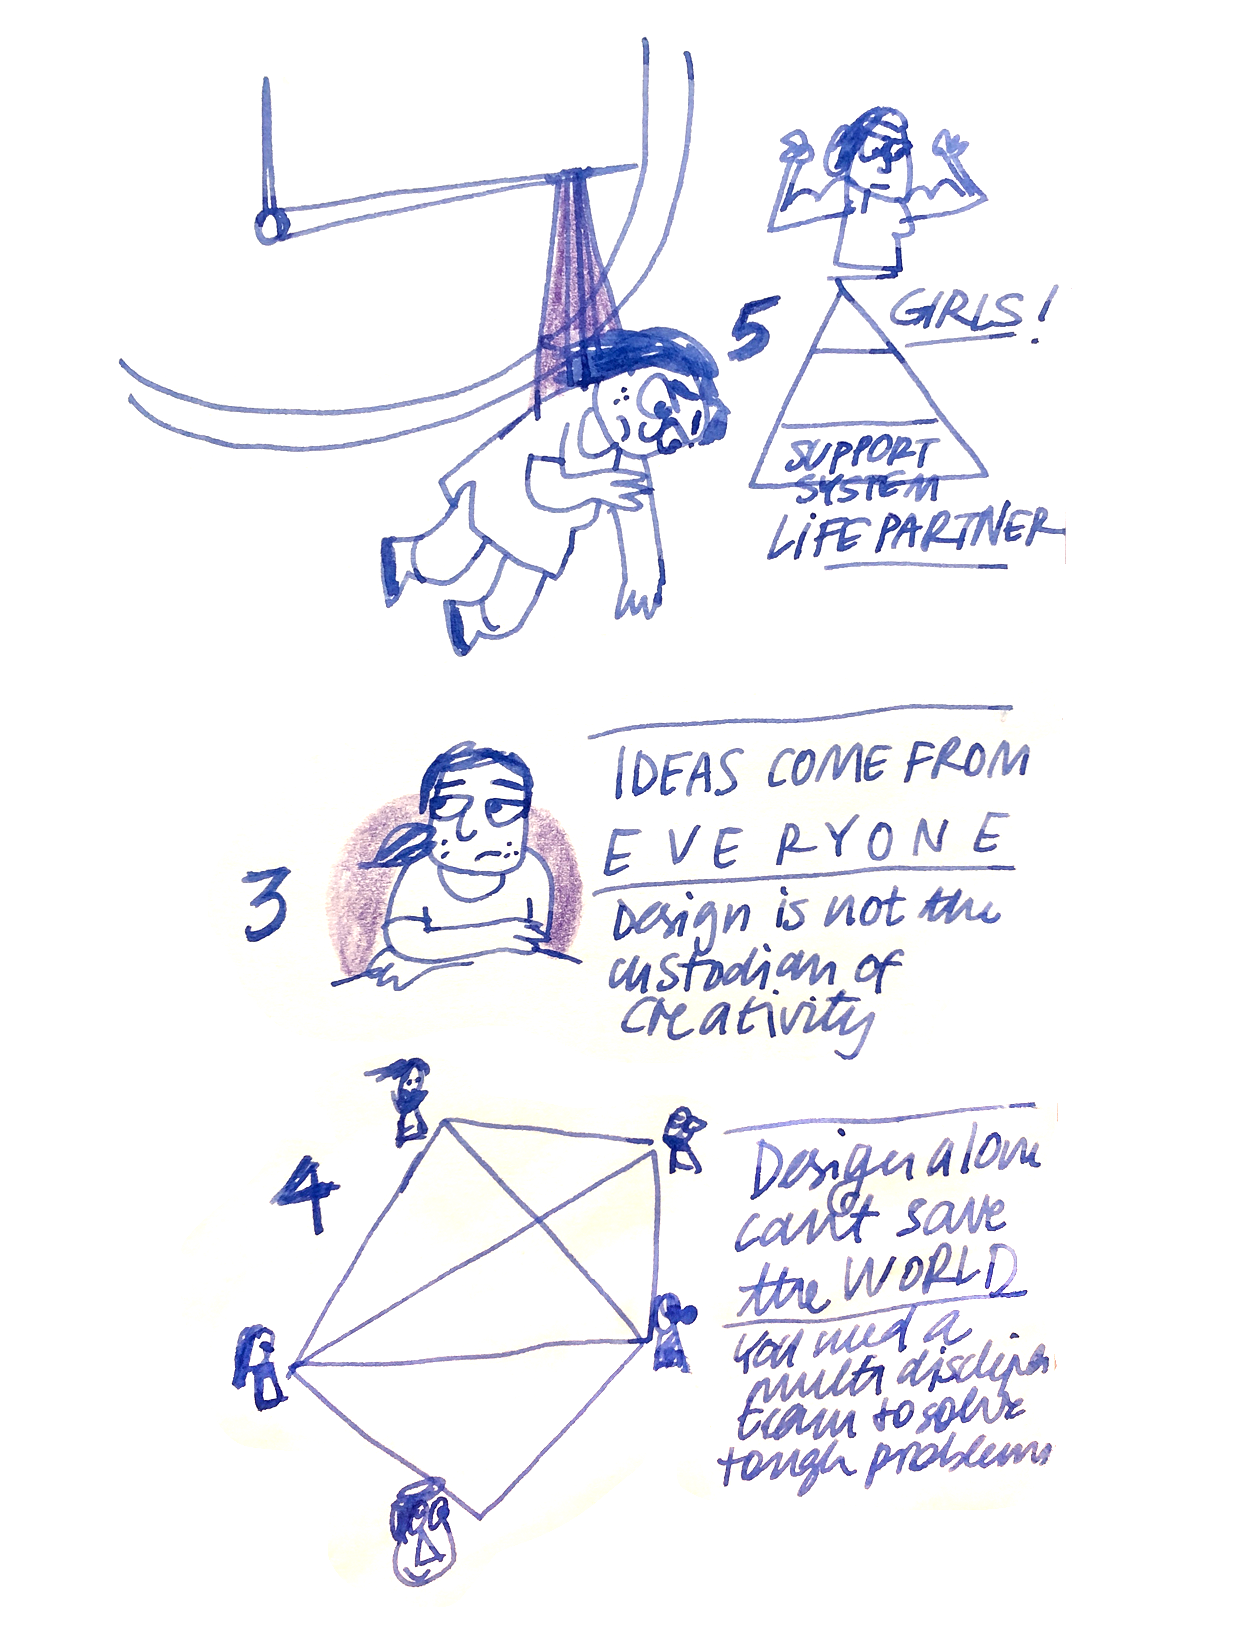 5
GIRLS!
SUPPORT
SYSTEM
LIFE PARTNER
3
IDEAS COME FROM
EVERYONE
Design is not the
custodian of
creativity
4
Design alone
can't save
the WORLD
You need a
multi disciplin
team to solve
tough problems